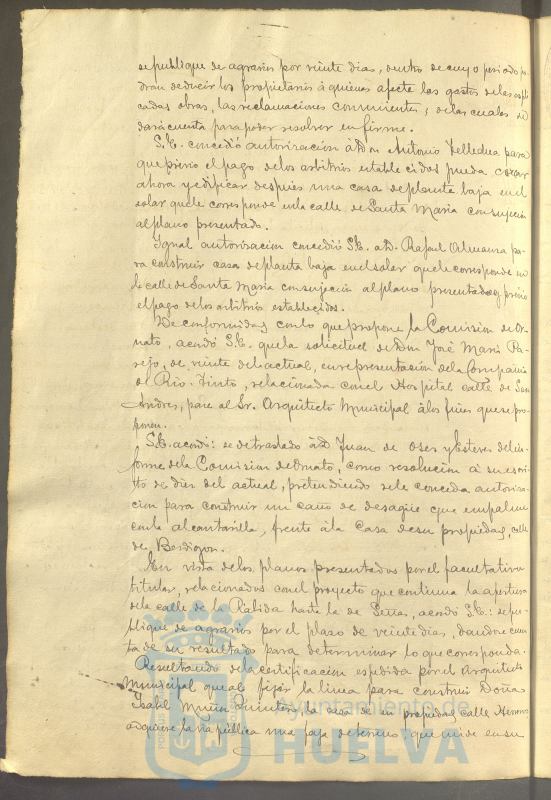 se publique de agravios por veinte dias, dentro de cuyo periodo po-
dran deducir los propietarios á quienes afecte los gastos de las espli-
cadas obras, las reclamaciones convinientes; de las cuales se
dará cuenta para poder resolver en firme.
S.E. concedió autorización á Don Antonio para
que previo el pago de los arbitrios establecidos pueda cercar
ahora y edificar despues una casa de planta baja en el
solar que le corresponde en la calle de Santa Maria con sujecion
al plano presentado.
Igual autorizacion concedió S.E. a D. Rafael Almansa pa-
ra construir casa de planta baja en el solar que le corresponde en
la calle de Santa Maria con sujecion al plano presentado y previo
el pago de los arbitrios establecidos.
De conformidad con lo que propone la Comision de Or-
nato, acordó S.E. que la solicitud de Don José Maria Pa-
rejo, de veinte del actual, en representacion de la Compañia
de Rio-Tinto, relacionada con el Hospital calle de San
Andres, pase al Sr. Arquitecto Municipal á los fines que se pro-
ponen.
S.E. acordó: se de traslado á D. Juan de Oses y Esteves del in-
forme de la Comision de Ornato, como resolucion á su escri-
to de diez del actual, pretendiendo se le conceda autoriza-
cion para construir un caño de desagüe que empalme
con la alcantarilla, frente á la casa de su propiedad, calle
de Berdigon.
En vista de los planos presentados por el facultativo
titular, relacionados con el proyecto que continua la apertura
de la calle de la Rabida hasta la de , acordó S.E.: se pu-
blique de agravios por el plazo de veinte dias, dandose cuen-
ta de su resultado para determinar lo que corresponda.
Resultando de la certificacion espedida por el Arquitecto
Municipal que al fijar la linea para construir Doña
Isabel Quintero, la casa de su propiedad calle
adquiere la via pública una faja de terreno que mide en su
Ayuntamiento de
HUELVA